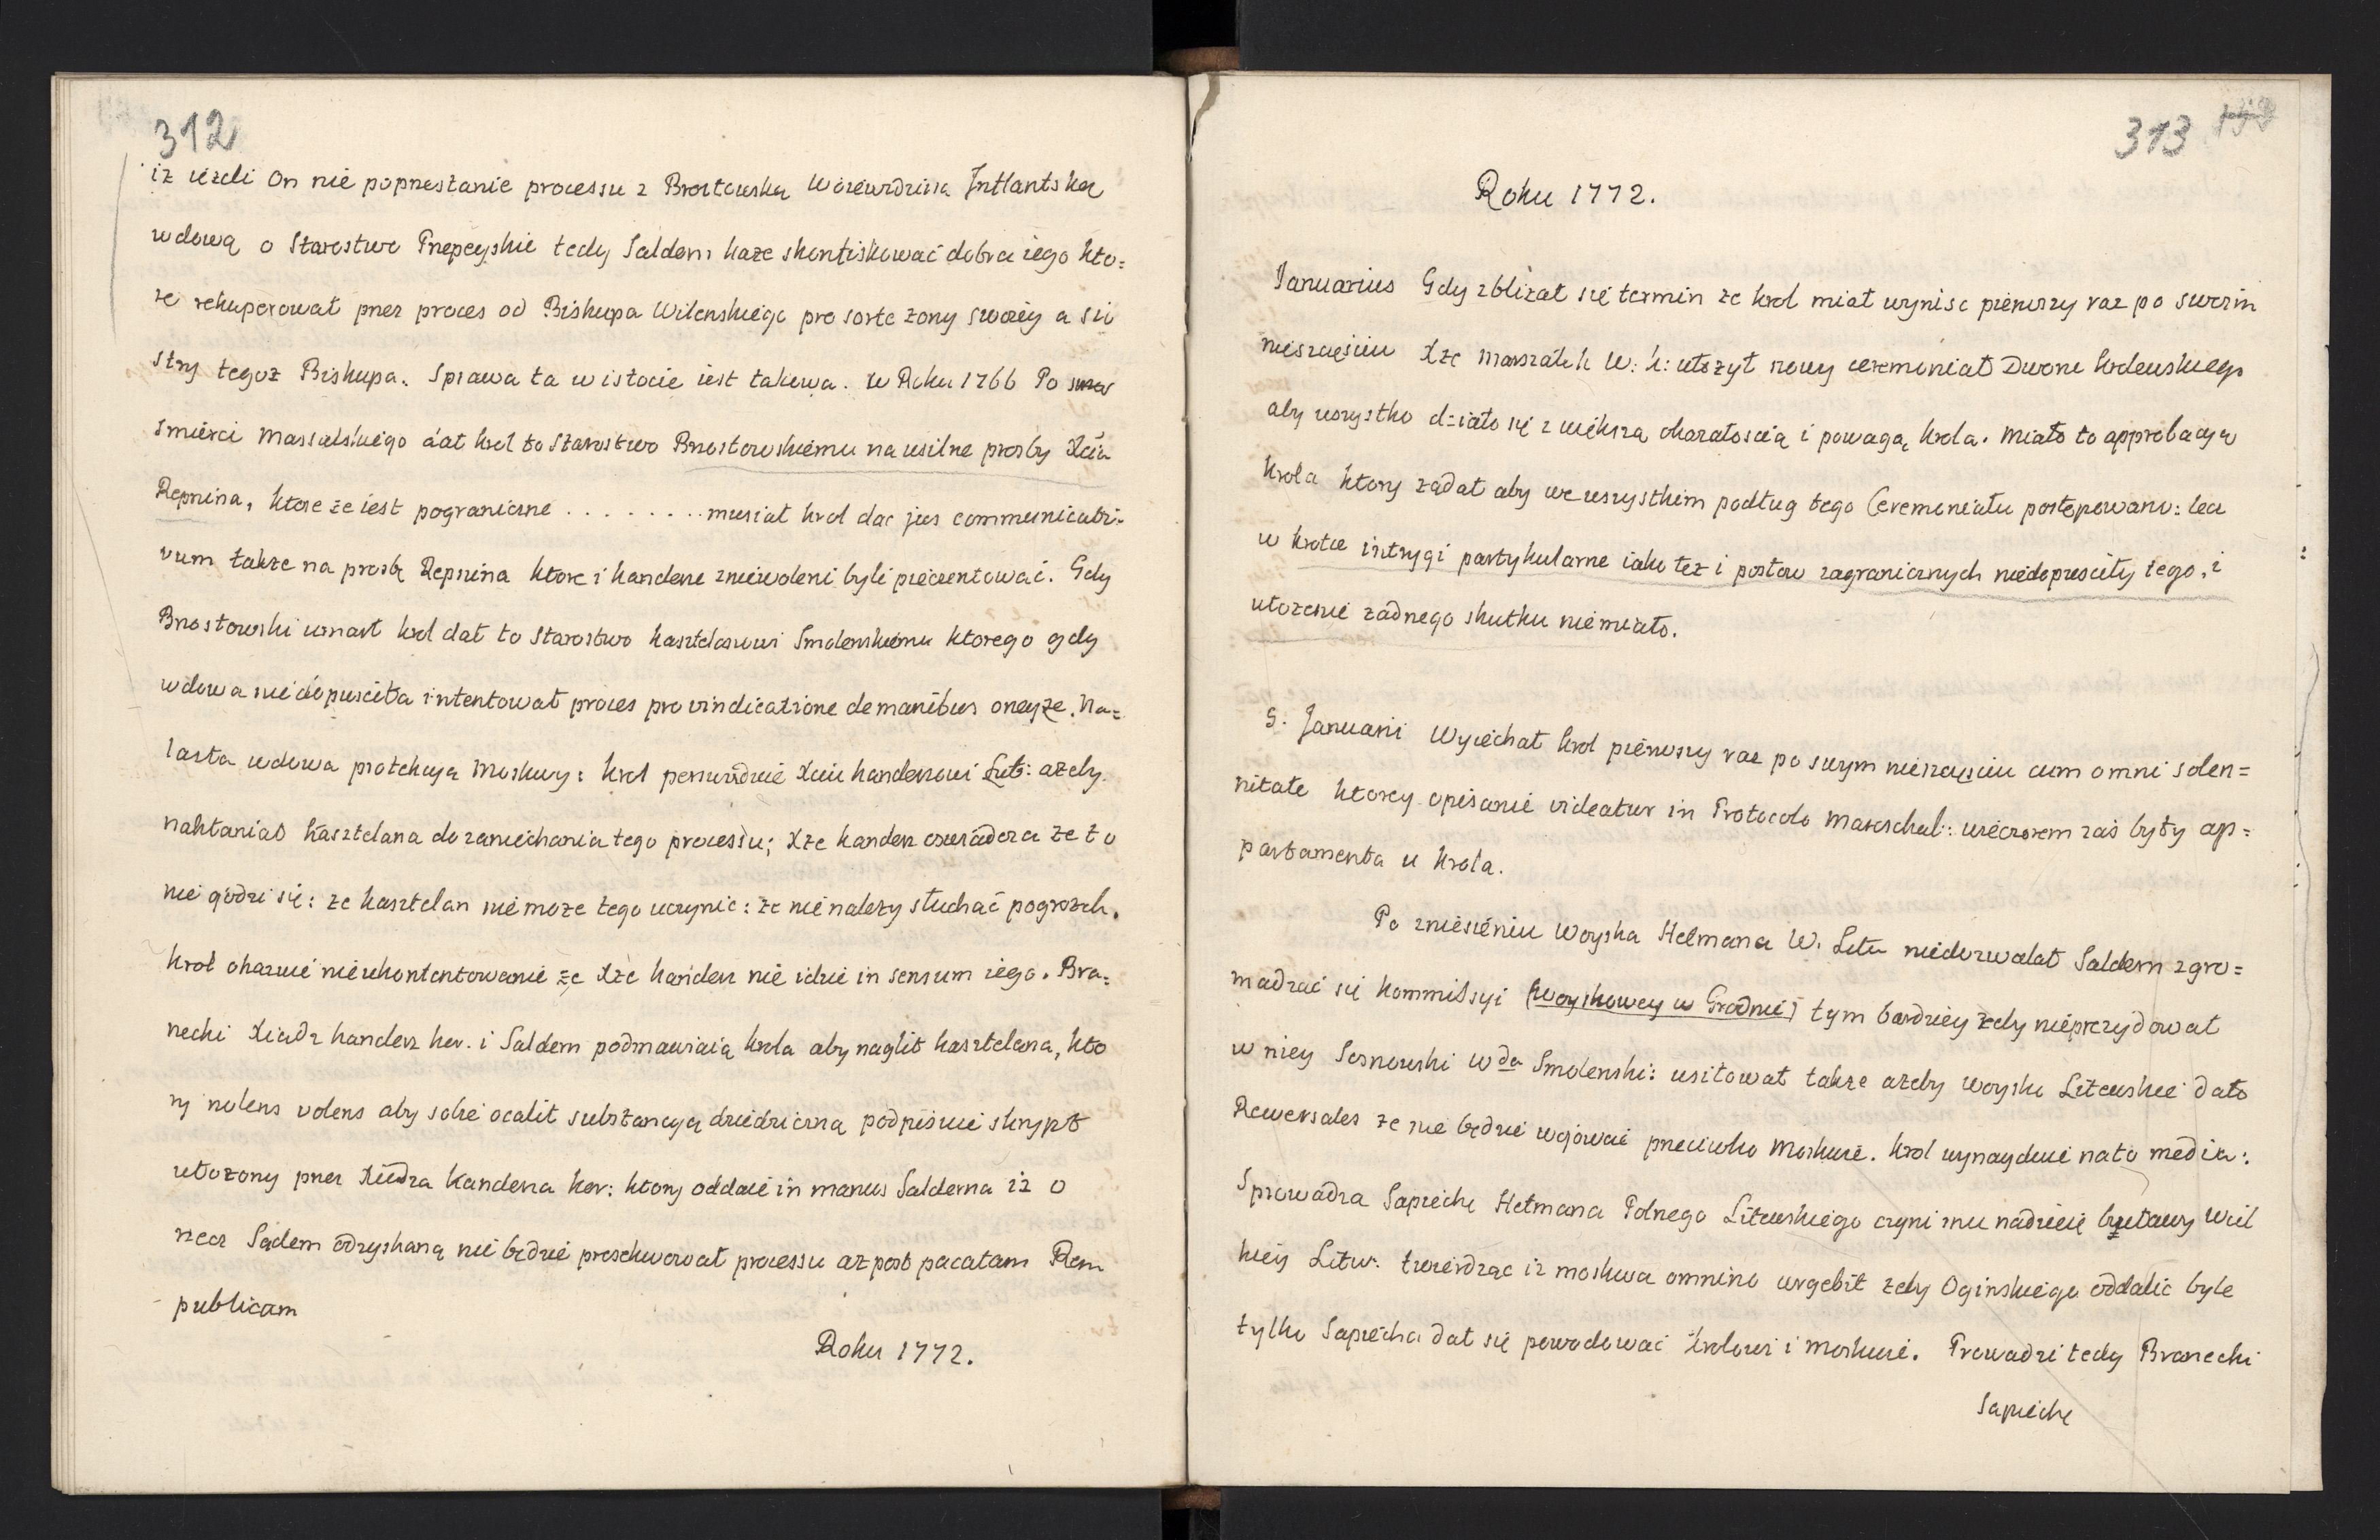 312
iż ieżeli On nie poprzestanie processu z Brzostowską Woiewodziną Inflantską
wdową o Starostwo Przepeyskie tedy Saldern każe skonfiskować dobra iego kto=
re rekuperował przez proces od Biskupa Wilenskiego pro sorte żony swoiey a sio
stry tegoż Biskupa. Sprawa ta w istocie iest takowa. w Roku 1766 Po
smierci Massalskiego dał krol to Starostwo Brzostowskiemu na usilne prosby Xcia
Repnina, ktore że iest pograniczne . . . . . . . . musiał krol dac jus communicati=
vum także na prosbę Repnina ktore i kanclerze zniewoleni byli pieczentować. Gdy
Brzostowski umarł krol dał to Starostwo kasztelanowi Smolenskiemu ktorego gdy
wdowa niedopusciła intentował proces pro vindicatione de manibus oneyże. Na=
lazła wdowa protekcyą Moskwy: krol perswaduie Xciu kanclerzowi Lit: ażeby
nakłaniał kasztelana do zaniechania tego processu; Xże kanclerz oswiadcza że to
nie godzi się: że kasztelan niemoże tego uczynic: że nie należy słuchać pogrożek.
Krol okazuie nieukontentowanie że Xże kanclerz nie idzie in sensum iego. Bra=
necki Xiądz kanclerz kor. i Saldern podmawiaią krola aby naglił kasztelana, kto
ry nolens volens aby sobie ocalił substancyą dziedziczną podpisuie skrypt
ułożony przez Xiędza kanclerza kor: ktory oddaie in manus Salderna iż o
rzecz Sądem odzyskaną nie będzie prosekwował processu aż post pacatam Rem
publicam
Roku 1772.
313
Roku 1772.
Januarius Gdy zbliżał się termin że krol miał wynisc pierwszy raz po swoim
nieszczęsciu Xże marszałek W. k: ułożył nowy ceremoniał Dworu krolewskiego
aby wszystko działo się z większą okazałoscią i powagą krola. Miało to approbacyą
krola ktory żądał aby we wszystkim podług tego Ceremoniału postępowano: lecz
w krotce intrygi partykularne iako też i posłow zagranicznych niedopusciły tego, i
ułożenie żadnego skutku niemiało.
5. Januarii Wyiechał krol pierwszy raz po swym nieszczęsciu cum omni solen=
nitate ktorey opisanie videatur in Protocolo Mareschal: wieczorem zaś były ap=
partamenta u krola.
Po zniesieniu Woyska Hetmana W. Litw niedozwalał Saldern zgro=
madzać się kommissyi (Woyskowey w Grodnie) tym bardziey żeby nieprezydował
w niey Sosnowski Wda Smolenski: usitował także ażeby woysko Litewskie dało
Rewersales że nie będzie wojować przeciwko Moskwie. krol wynayduie na to media:
Sprowadza Sapiehę Hetmana Polnego Litewskiego czyni mu nadzieię buławy Wiel
kiey Litw. twierdząc iż moskwa omnino urgebit żeby Oginskiego oddalić byle
tylko Sapieha dał się powodować krolowi i moskwie. Prowadzi tedy Branecki
Sapiehę